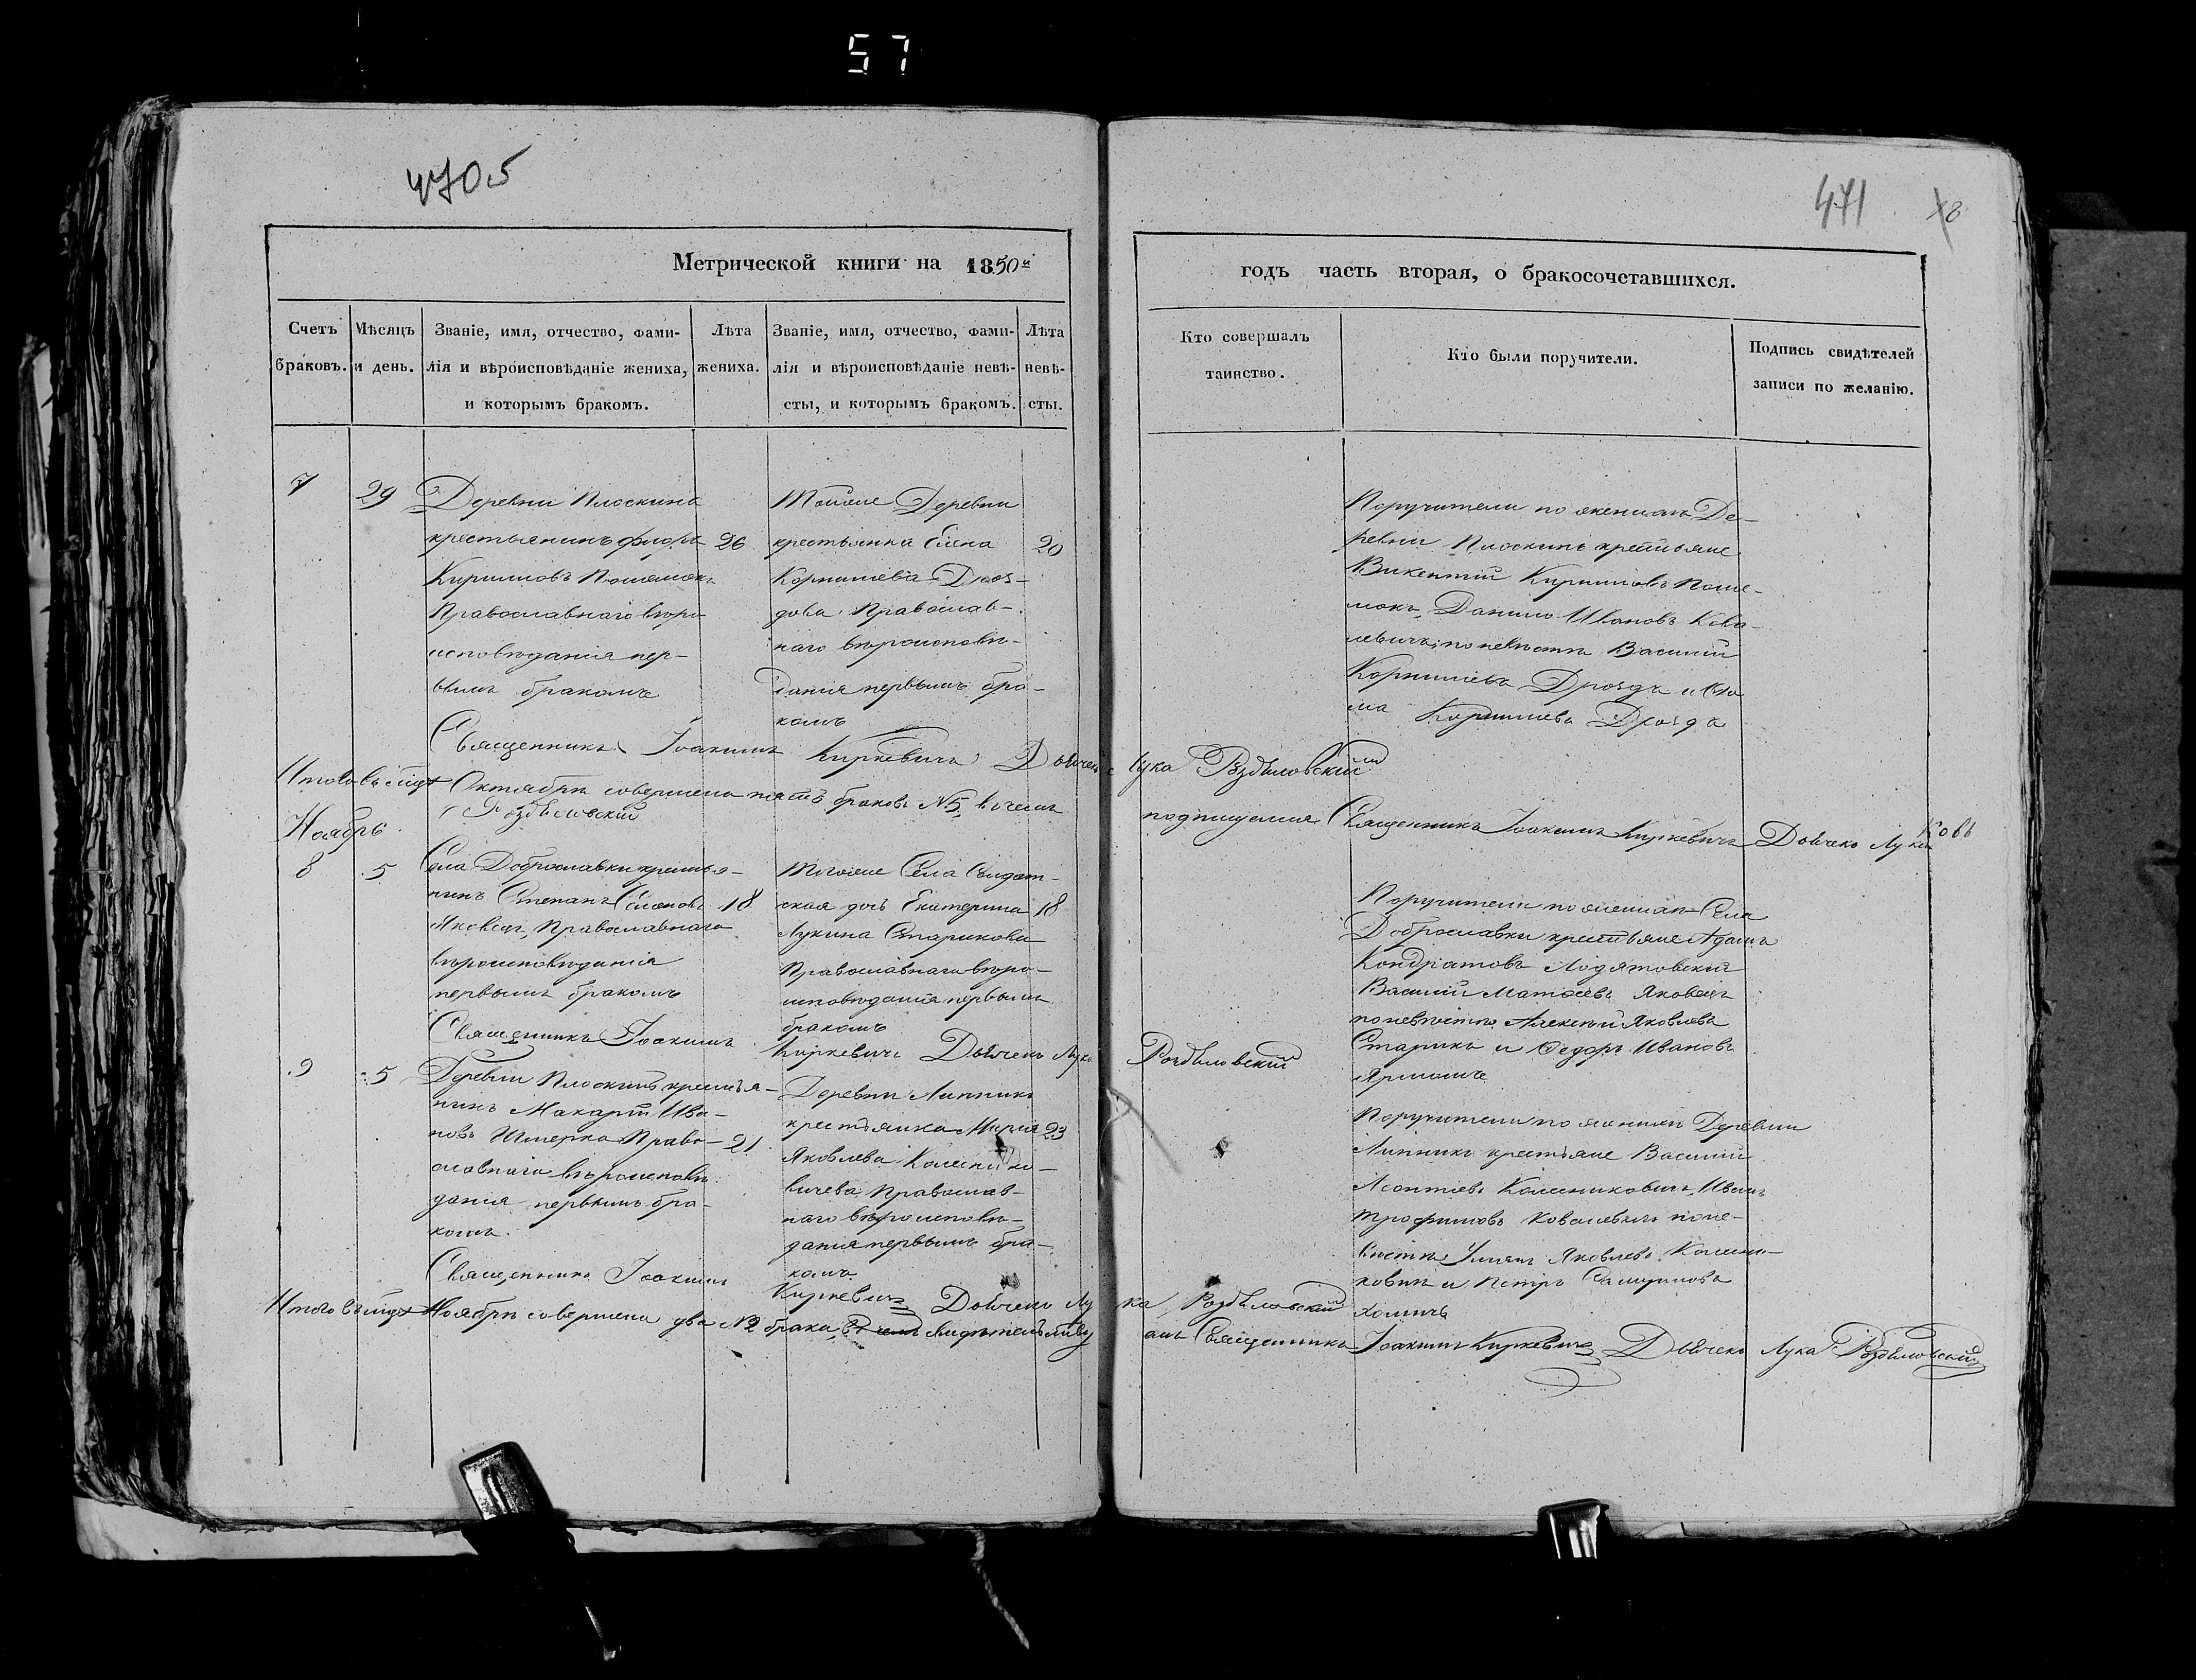 57
470.5
471
Метрической книги на 1850й
годъ часть вторая, о бракосочетавшихся.
Счетъ браковъ.
Мѣсяцъ и день.
Званіе, имя, отчество, фами-
лія и вѣроисповѣданіе жениха,
и которымъ бракомъ.
Лѣта
жениха.
Званіе, имя, отчество, фами-
лія и вѣроисповѣданіе невѣ-
сты, и которымъ бракомъ.
Лѣта
невѣ-
сты.
Кто совершалъ
таинство.
Кто были поручители.
Подпись свидѣтелей
записи по желанію.
7
29
Деревни Плоскинь
крестьянинъ Флоръ
Кириловъ
Православнаго вѣро
исповѣданія пер-
вымъ бракомъ
26
Тойже Деревни
крестьянка Елена
Корнилева Дроз-
дова Православ-
наго вѣроисповѣ-
данія первымъ бра-
комъ
20
Поручители по женихѣ Де-
ревни Плоскинь крестьяне
Викентій Кириловъ
Данило Ивановъ Кова-
левичъ; по невѣстѣ Василій
Корнилевъ Дроздъ и Ѳо
ма Корнилевъ Дроздъ
Священникъ Іоакимъ Киркевичъ Дьячекъ Лука Роздяловскій
Итого въ мцѣ Октябрѣ совершено пять браковъ №5, въ чемъ
подписуемся Священникъ Іоакимъ Киркевичъ Дьячекъ Лука
Роздяловскій
Ноябрь
8
5
Села Доброславки крестья-
нинъ Степанъ Семеновъ
Яковецъ, Православнаго
вѣроисповѣданія
первымъ бракомъ
18
Тогоже Села Солдат-
ская дочь Екатерина
Лукина Старикова
Православнаго вѣро-
исповѣданія первымъ
бракомъ
18
Поручители по женихѣ Села
Доброславки крестьяне Адамъ
Кондратовъ
Василій Матвеевъ Яковецъ
по невѣстѣ Алексѣй Яковлевъ
Старикъ и Ѳедоръ Ивановъ
Священникъ Іоакимъ Киркевичъ Дьячекъ Лука Роздяловскій
9
5
Деревни Плоскинь крестья-
нинъ Макарій Ива-
новъ Шперка Право-
славнаго вѣроисповѣ
данія первымъ бра-
комъ.
21
Деревни Липникъ
крестьянка Марія
Яковлева Колеснико-
вичева Православ-
наго вѣроисповѣ-
данія первымъ бра-
комъ
23
Поручители по женихѣ Деревни
Липникъ крестьяне Василій
Леонтіевъ Колесниковичъ, Иванъ
Трофимовъ Ковалевичъ по не-
вѣстѣ Яковлевъ Колесни-
ковичъ и Петръ
Хомичъ
Священникъ Іоакимъ Киркевичъ Дьячекъ Лука Роздяловскій
Итого въ мцѣ Ноябрѣ совершено два №2 брака,
Священникъ Іоакимъ Киркевичъ Дьячекъ Лука Роздяловскій